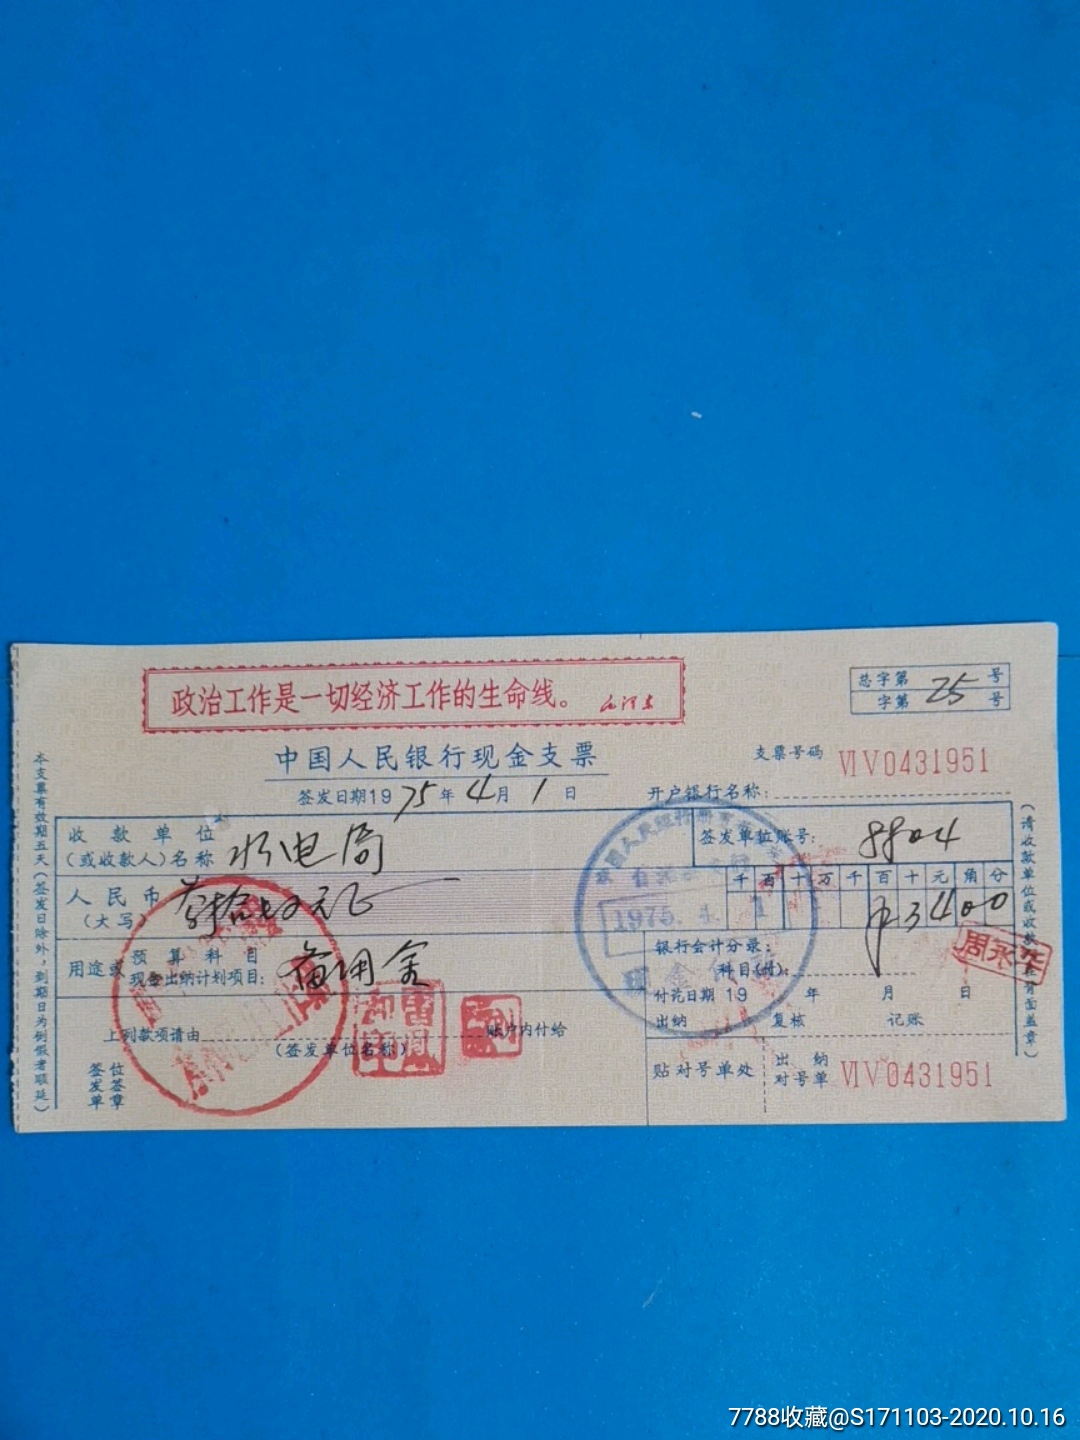 政治工作是一切经济工作的生命线。 毛泽东
总字第 号
字第 25 号
中国人民银行现金支票
支票号码 ⅥⅤ0431951
签发日期1975年4月1日
开户银行名称:
收款单位
(或收款人)名称 水电局
签发单位账号: 8804
人民币
(大写) 叁拾肆元正
千百十万千百十元角分
¥3400
用途或 预算科目
现金出纳计划项目: 备用金
银行会计分录:
科目(付):
付讫日期19 年 月 日
出纳 复核 记账
上列款项请由 账户内付给
(签发单位名称)
签发单位签章
贴对号单处
出纳
对号单 ⅥⅤ0431951
本支票有效期五天(签发日除外,到期日为例假者顺延)
1975. 4. 1
现金付讫
周永华
7788收藏@S171103-2020.10.16